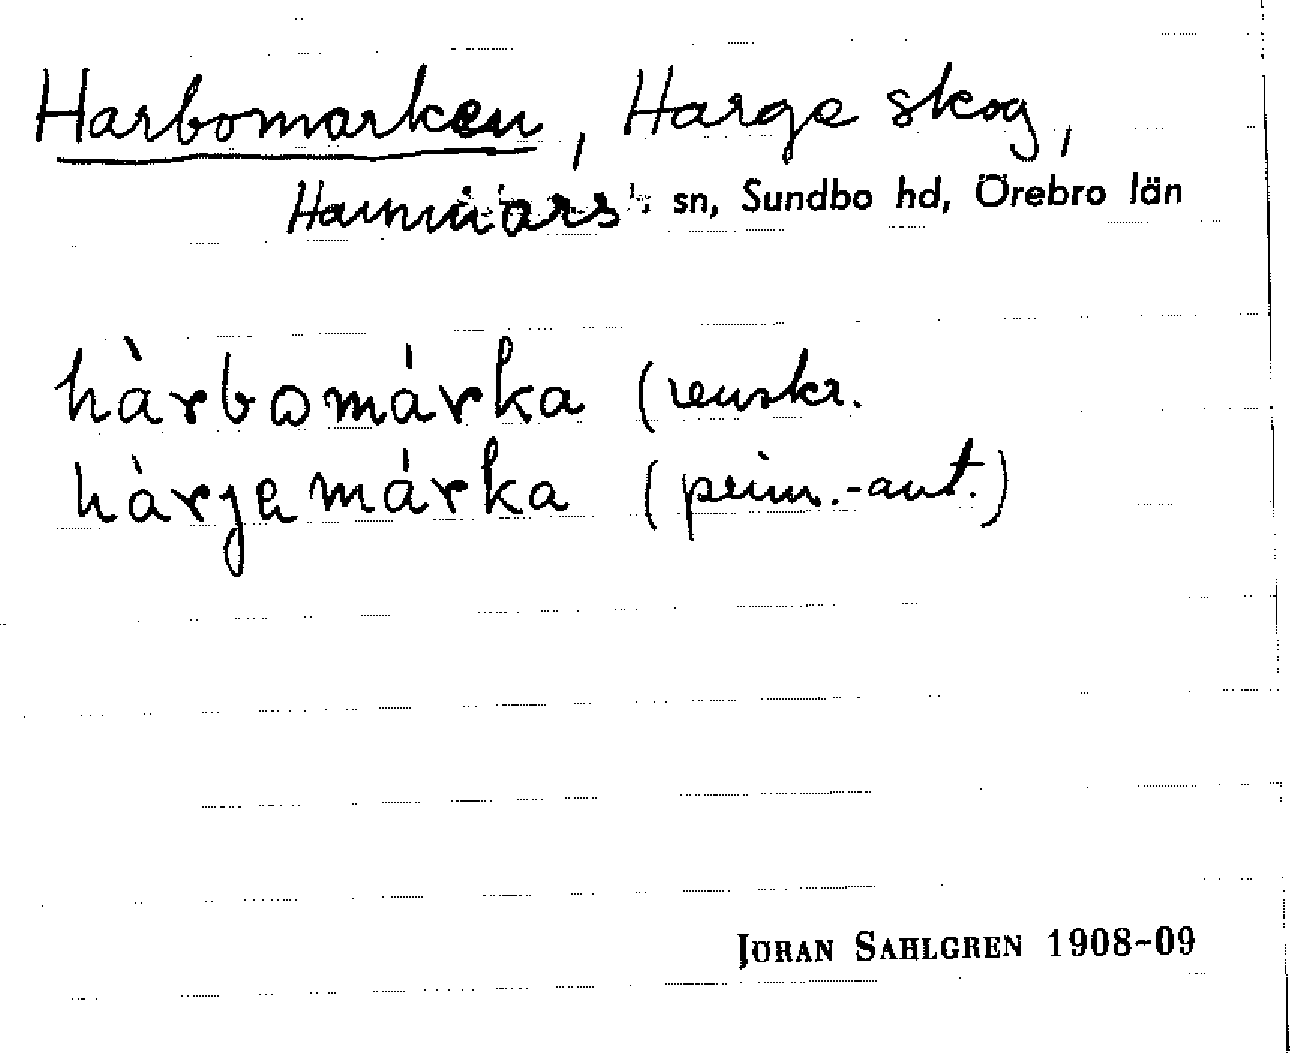 Harbomarken, Harge skog,
Hammars sn, Sundbo hd, Örebro län
hàrbomárka (renskr.
hàrjemárka (prim.-ant.)
JORAN SAHLGREN 1908-09